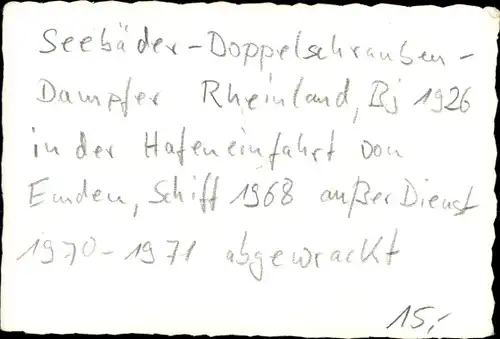 Seebäder-Doppelschrauben-
Dampfer Rheinland, Bj 1926
in der Hafeneinfahrt von
Emden, Schiff 1968 außer Dienst
1970-1971 abgewrackt
15,-